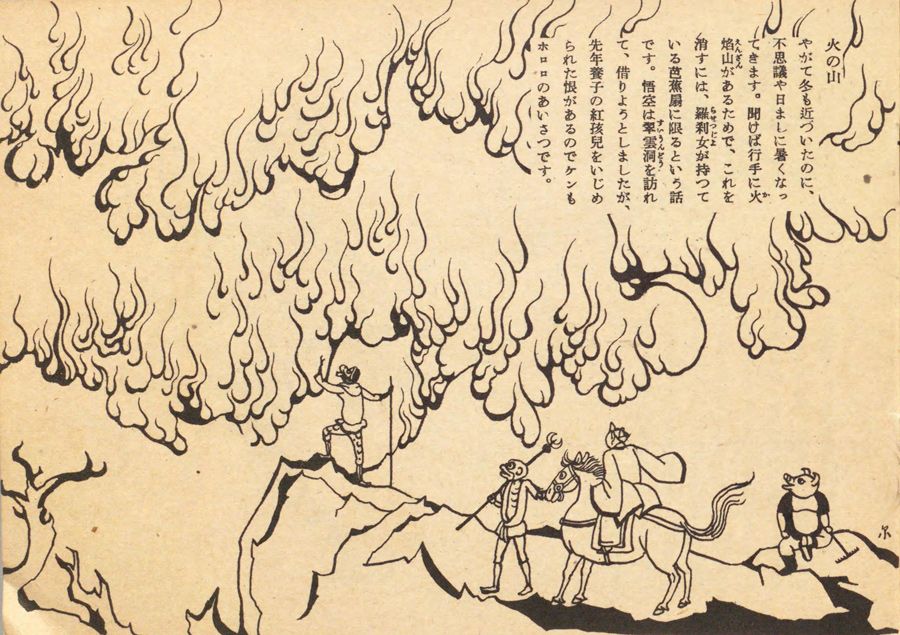 火の山
やがて冬も近づいたのに、
不思議や日ましに暑くなっ
てきます。聞けば行手に火
焰山があるためで、これを
消すには、羅刹女が持つて
いる芭蕉扇に限るという話
です。悟空は翠雲洞を訪れ
て、借りようとしましたが、
先年養子の紅孩兒をいじめ
られた恨があるのでケンも
ホロロのあいさつです。